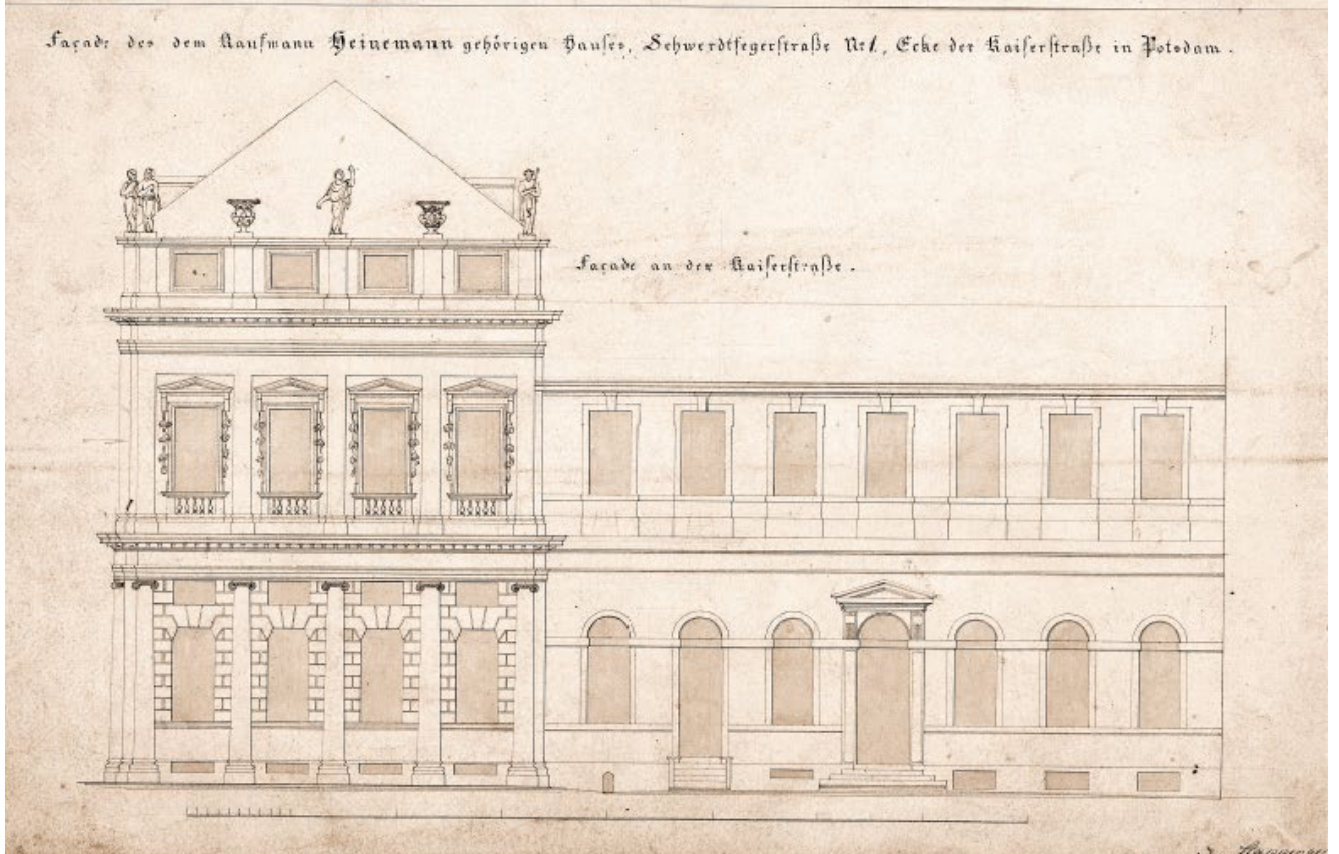 Façade des dem Kaufmann Heinemann gehörigen Hauses, Schwerdtfegerstraße No 1, Ecke der Kaiserstraße in Potsdam.
Façade an der Kaiserstraße.